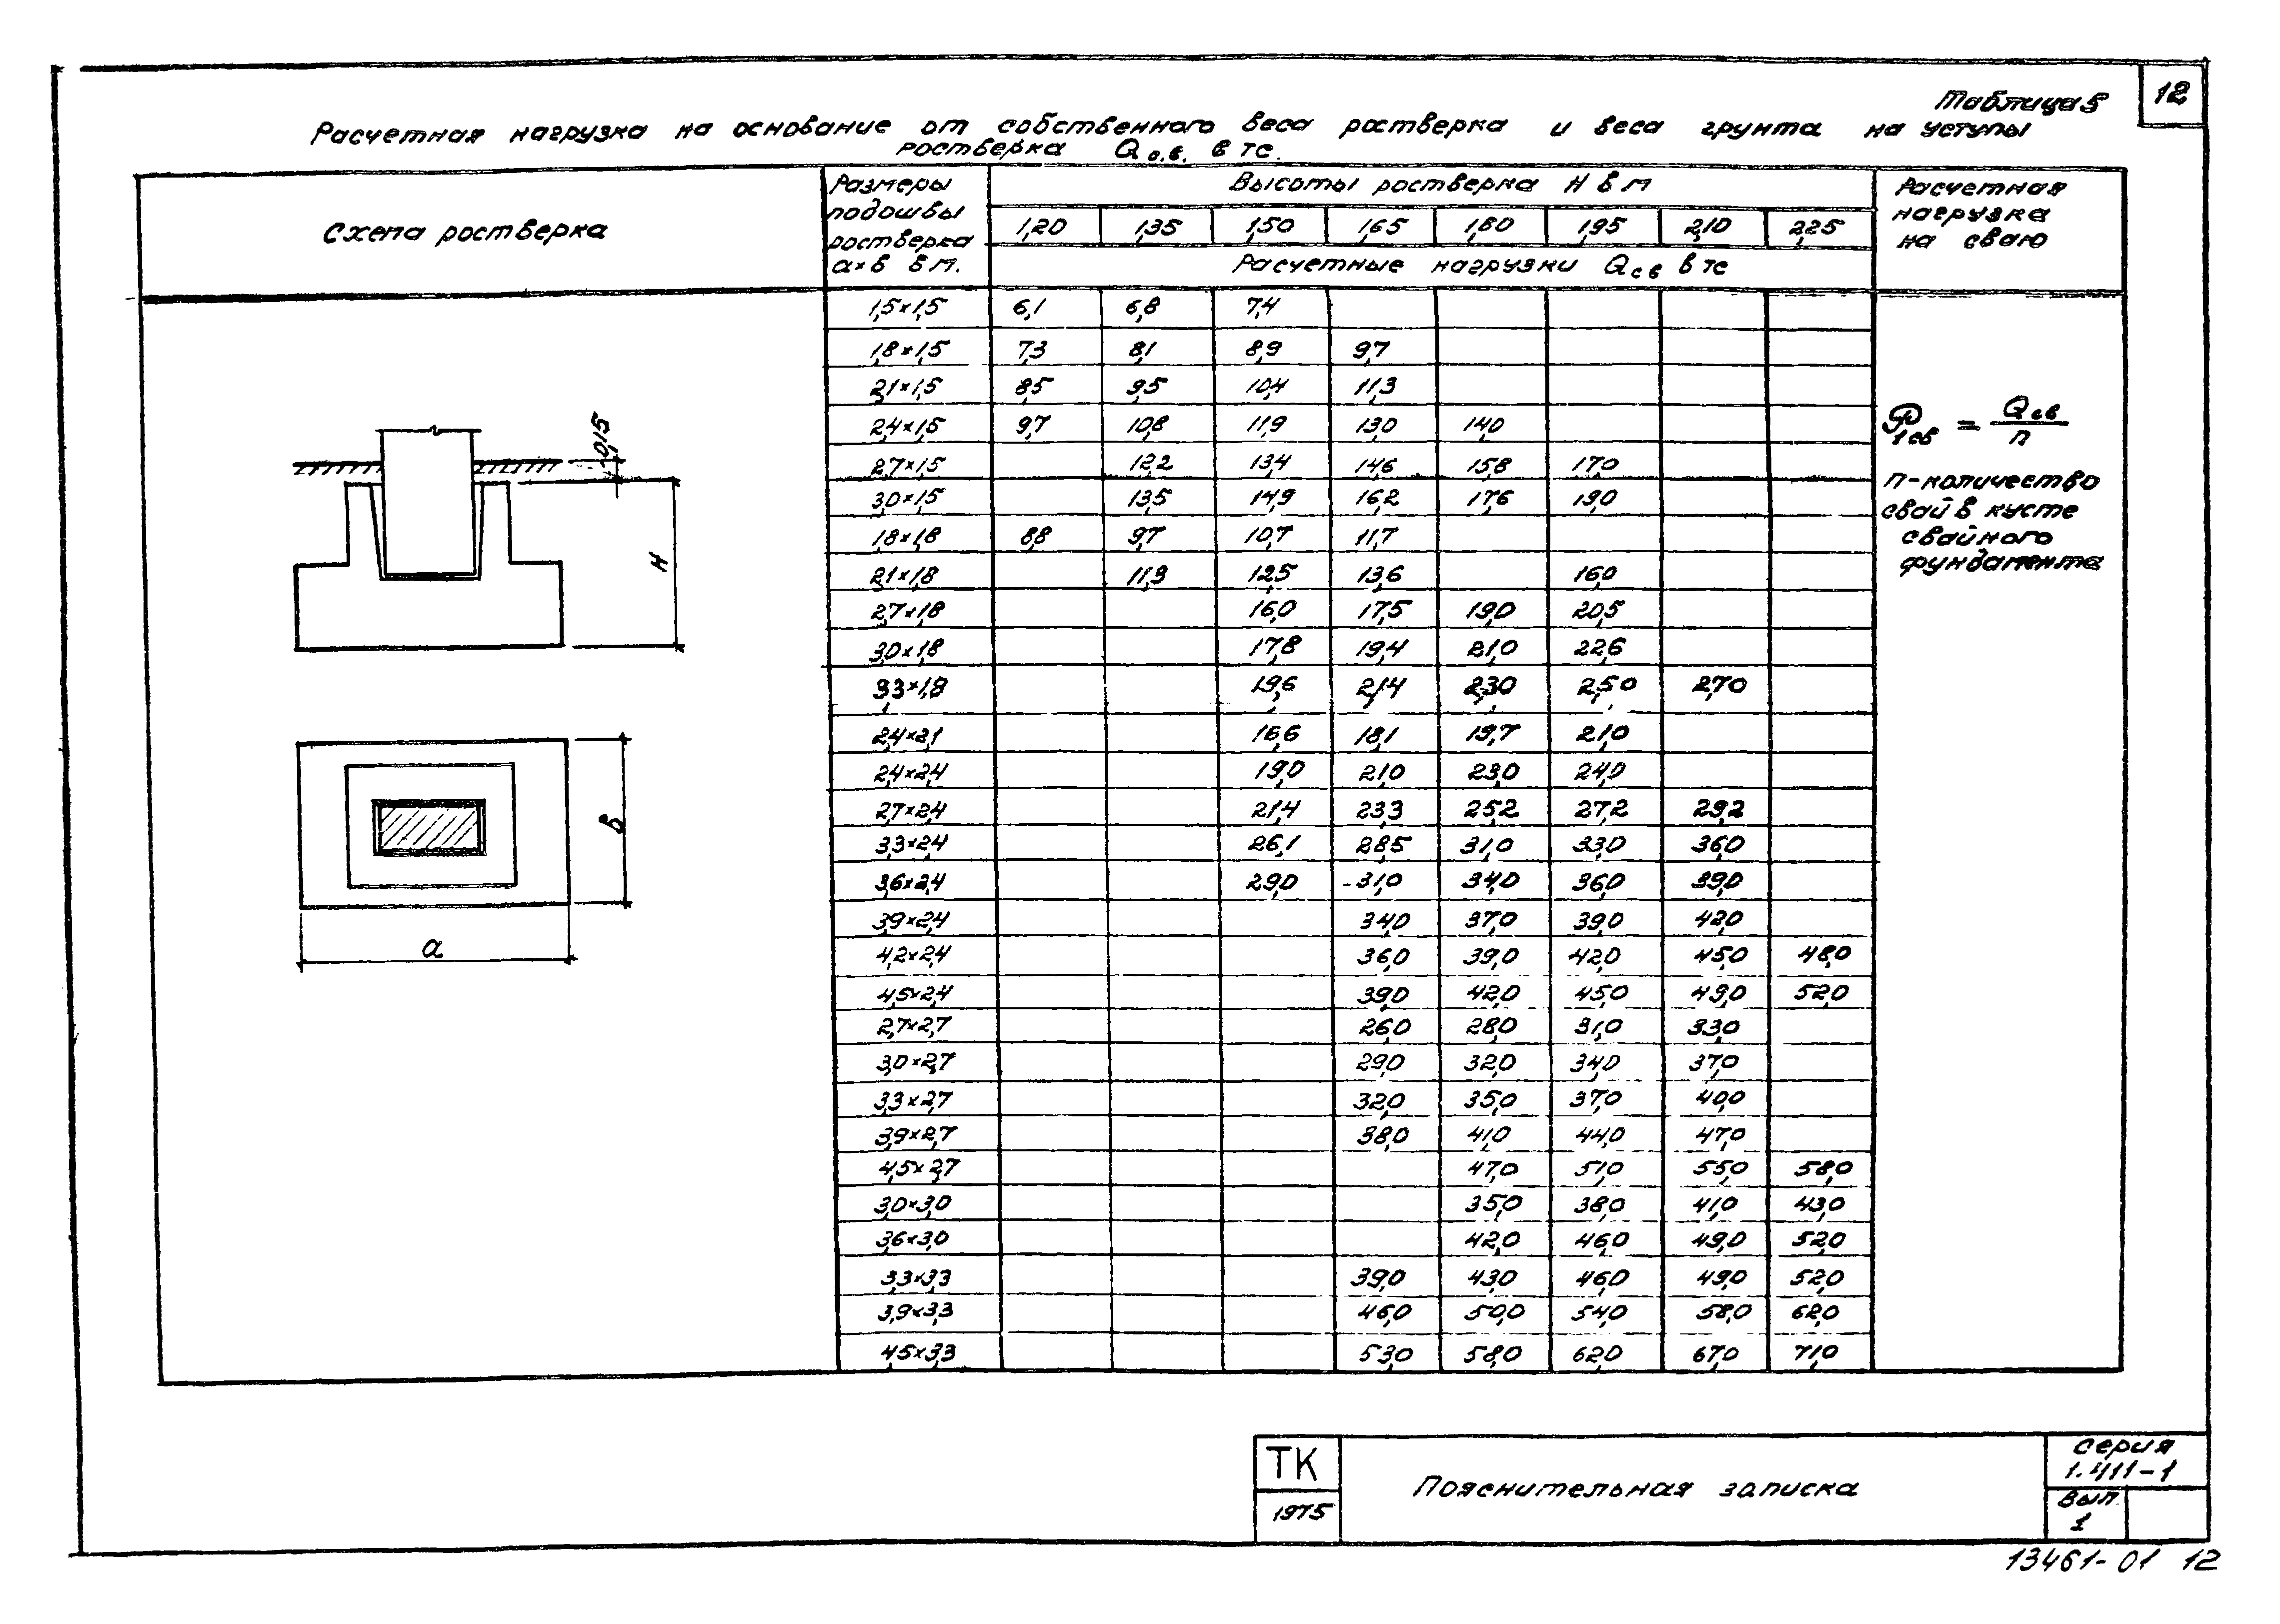 12
Таблица 5
Расчетная нагрузка на основание от собственного веса ростверка и веса грунта на уступы
ростверка Qс.в. в тс.
Схема ростверка
Размеры подошвы ростверка а×б в м.
Высоты ростверка Н в м
Расчетная нагрузка на сваю
1,20 1,35 1,50 1,65 1,80 1,95 2,10 2,25
Расчетные нагрузки Qсв в тс
1,5×1,5 6,1 6,8 7,4
1,8×1,5 7,3 8,1 8,9 9,7
2,1×1,5 8,5 9,5 10,4 11,3
2,4×1,5 9,7 10,8 11,9 13,0 14,0
2,7×1,5 12,2 13,4 14,6 15,8 17,0
3,0×1,5 13,5 14,9 16,2 17,6 19,0
1,8×1,8 8,8 9,7 10,7 11,7
2,1×1,8 11,3 12,5 13,6 16,0
2,7×1,8 16,0 17,5 19,0 20,5
3,0×1,8 17,8 19,4 21,0 22,6
3,3×1,8 19,6 21,4 23,0 25,0 27,0
2,4×2,1 16,6 18,1 19,7 21,0
2,4×2,4 19,0 21,0 23,0 24,0
2,7×2,4 21,4 23,3 25,2 27,2 29,2
3,3×2,4 26,1 28,5 31,0 33,0 36,0
3,6×2,4 29,0 31,0 34,0 36,0 39,0
3,9×2,4 34,0 37,0 39,0 42,0
4,2×2,4 36,0 39,0 42,0 45,0 48,0
4,5×2,4 39,0 42,0 45,0 49,0 52,0
2,7×2,7 26,0 28,0 31,0 33,0
3,0×2,7 29,0 32,0 34,0 37,0
3,3×2,7 32,0 35,0 37,0 40,0
3,9×2,7 38,0 41,0 44,0 47,0
4,5×2,7 47,0 51,0 55,0 58,0
3,0×3,0 35,0 38,0 41,0 43,0
3,6×3,0 42,0 46,0 49,0 52,0
3,3×3,3 39,0 43,0 46,0 49,0 52,0
3,9×3,3 46,0 50,0 54,0 58,0 62,0
4,5×3,3 53,0 58,0 62,0 67,0 71,0
0,15
Н
б
а
P1св = Qсв / n
n-количество
свай в кусте
свайного
фундамента
ТК
1975
Пояснительная записка
серия
1.411-1
Вып.
1
13461-01 12